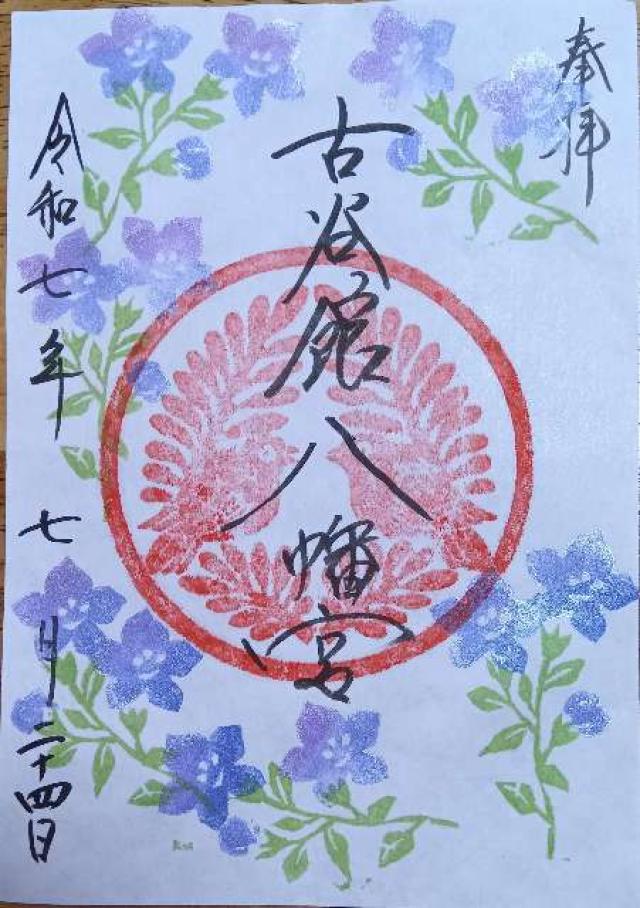 奉拝
古谷館八幡宮
令和七年七月二十四日